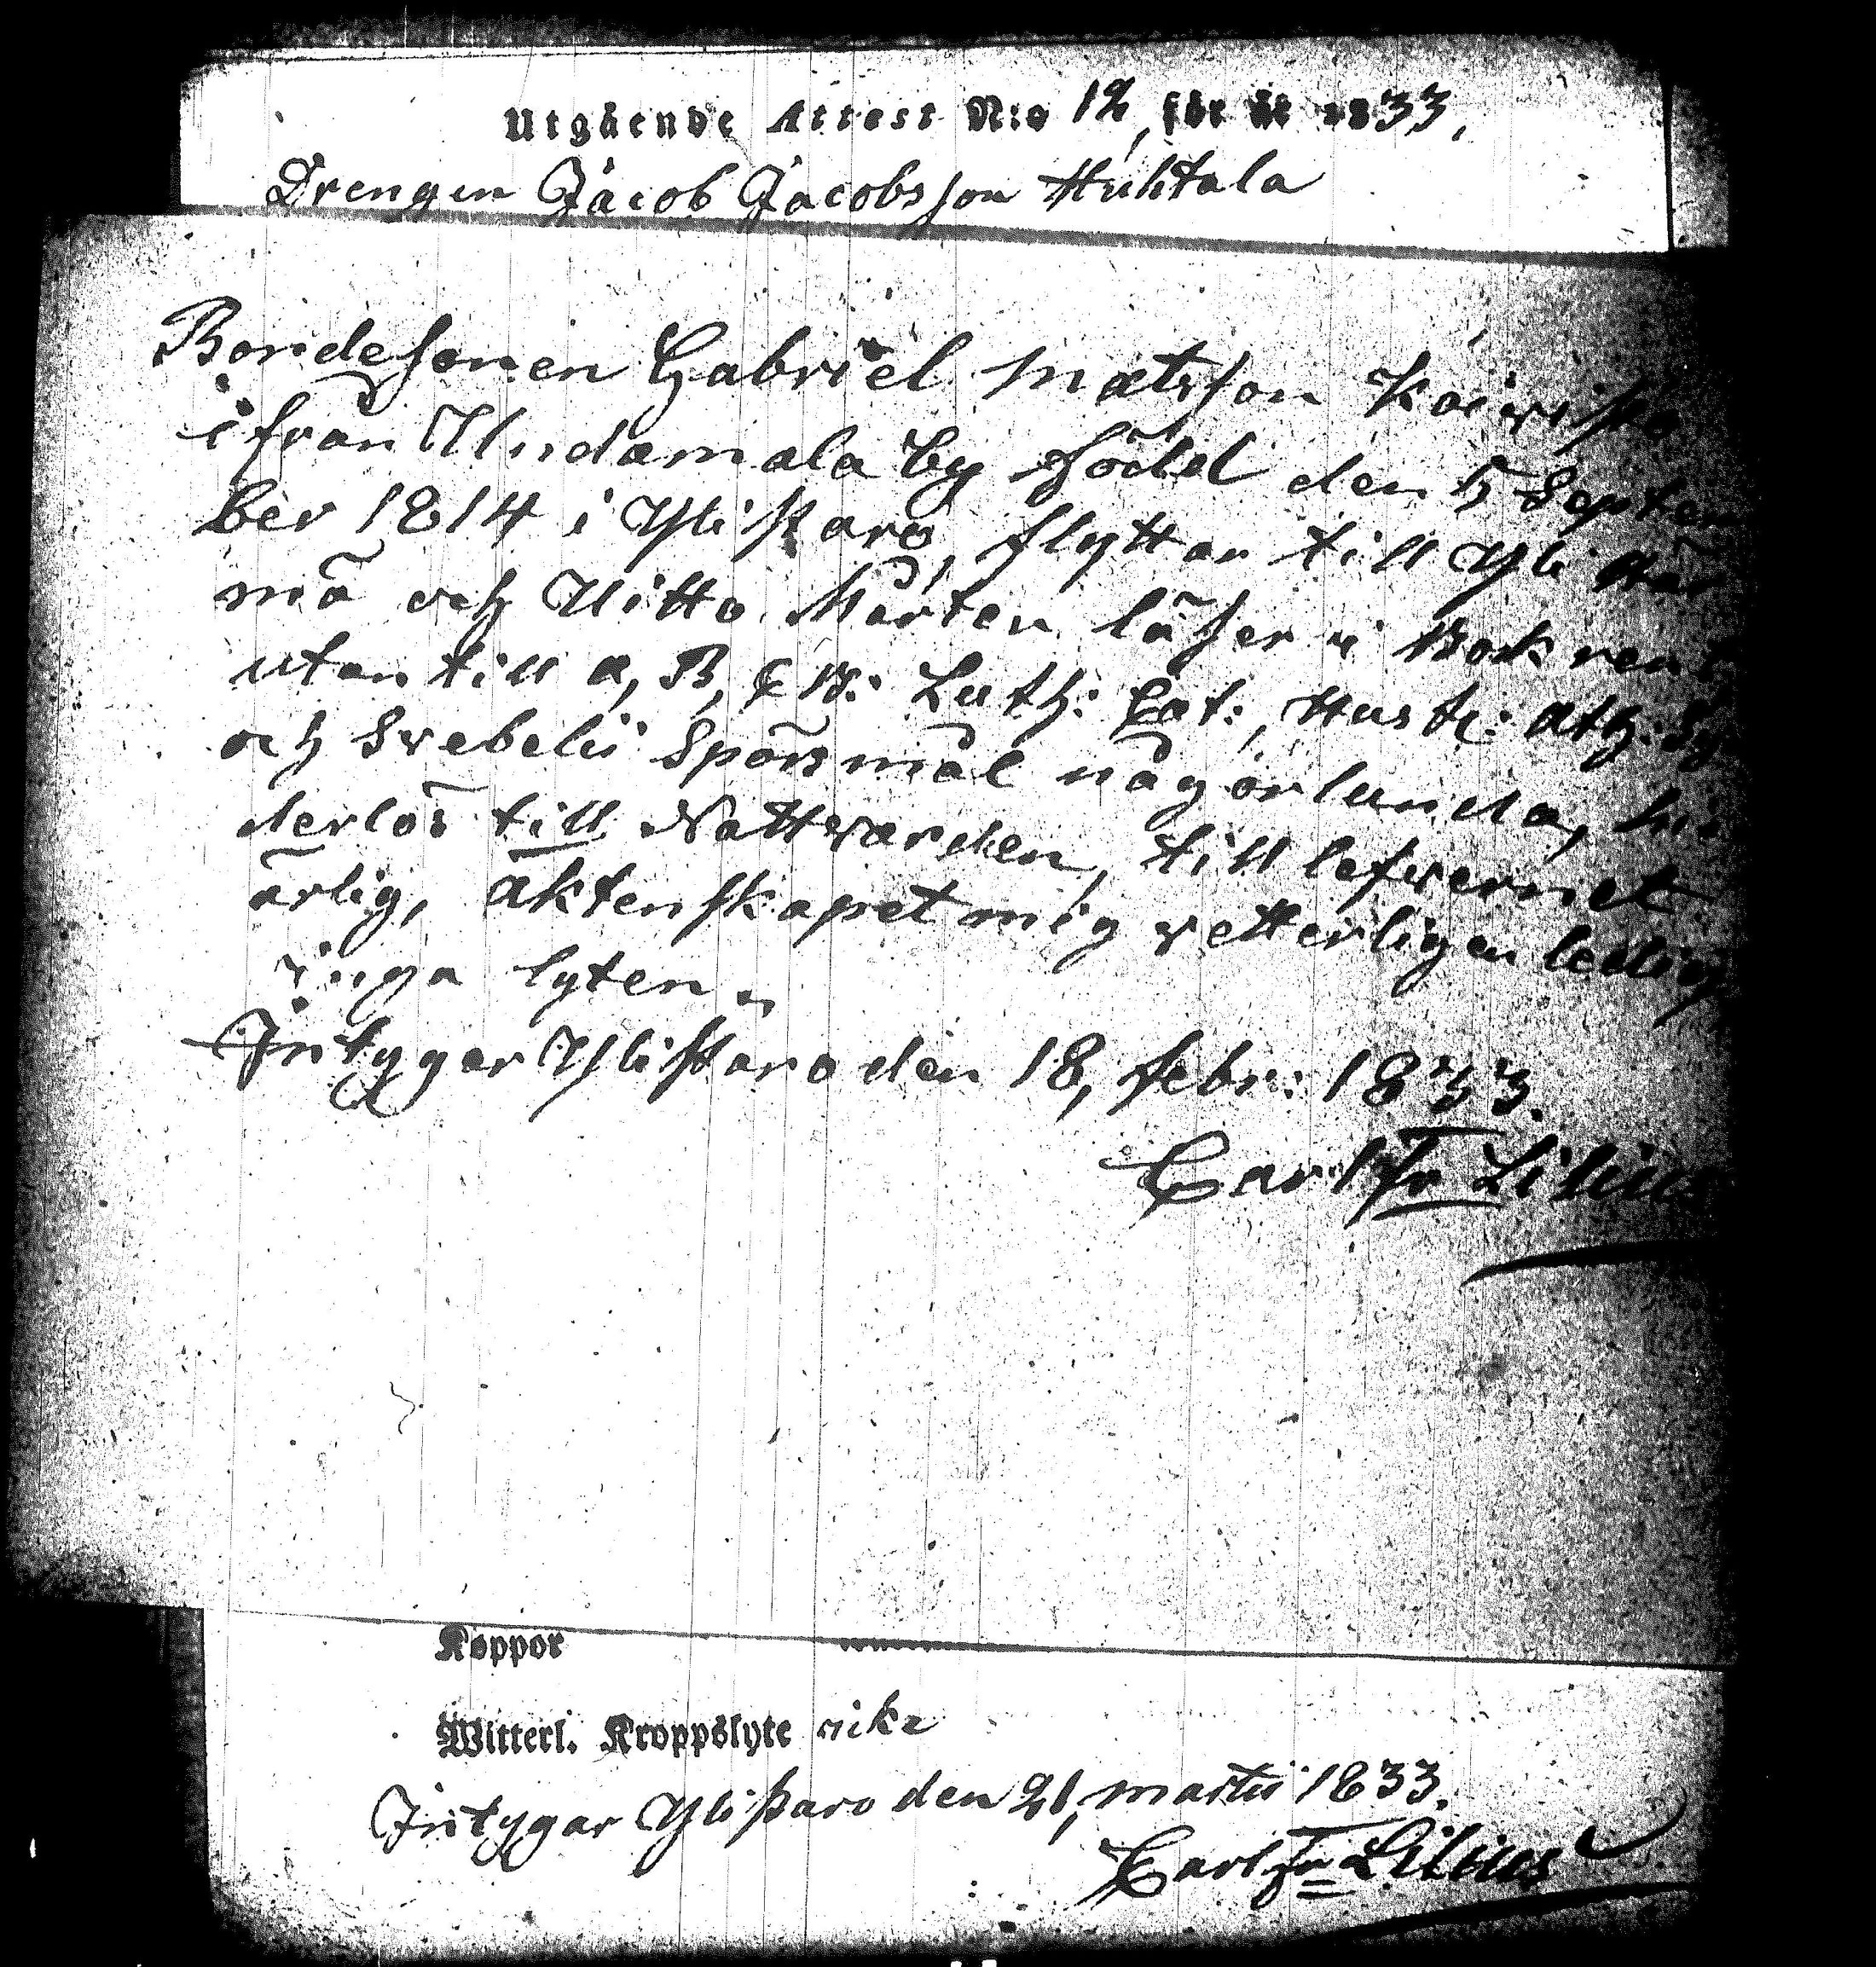 Utgående Attest N:o 12, för år 1833,
Drengen Jacob Jacobsson Huhtala
Bondesonen Gabriel Matsson
ifrån Undamala by född den 5 Septem
ber 1814 i Ylistaro, flyttar till Yli Här
mä och Uitto Mårten läser i Bok rent
utan till a, B, C B: Luth: Cat:, Hust: Ath: Sy
och Svebelii Spörsmål någorlunda, hin
derlös till Nattvarden, till lefvernet
ärlig, äktenskapet mig vetterligen ledig
inga lyten„
Intygar Ylistaro den 18, febr: 1833.
Carl Fr Lilius
Koppor
Witterl. Kroppslyte icke
Intygar Ylistaro den 21, martii 1833.
Carl Fr Lilius